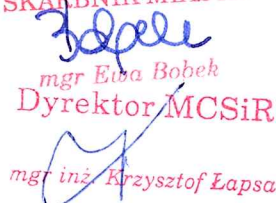 SKARBNIK
mgr Ewa Bobek
Dyrektor MCSiR
mgr inż. Krzysztof Łapsa